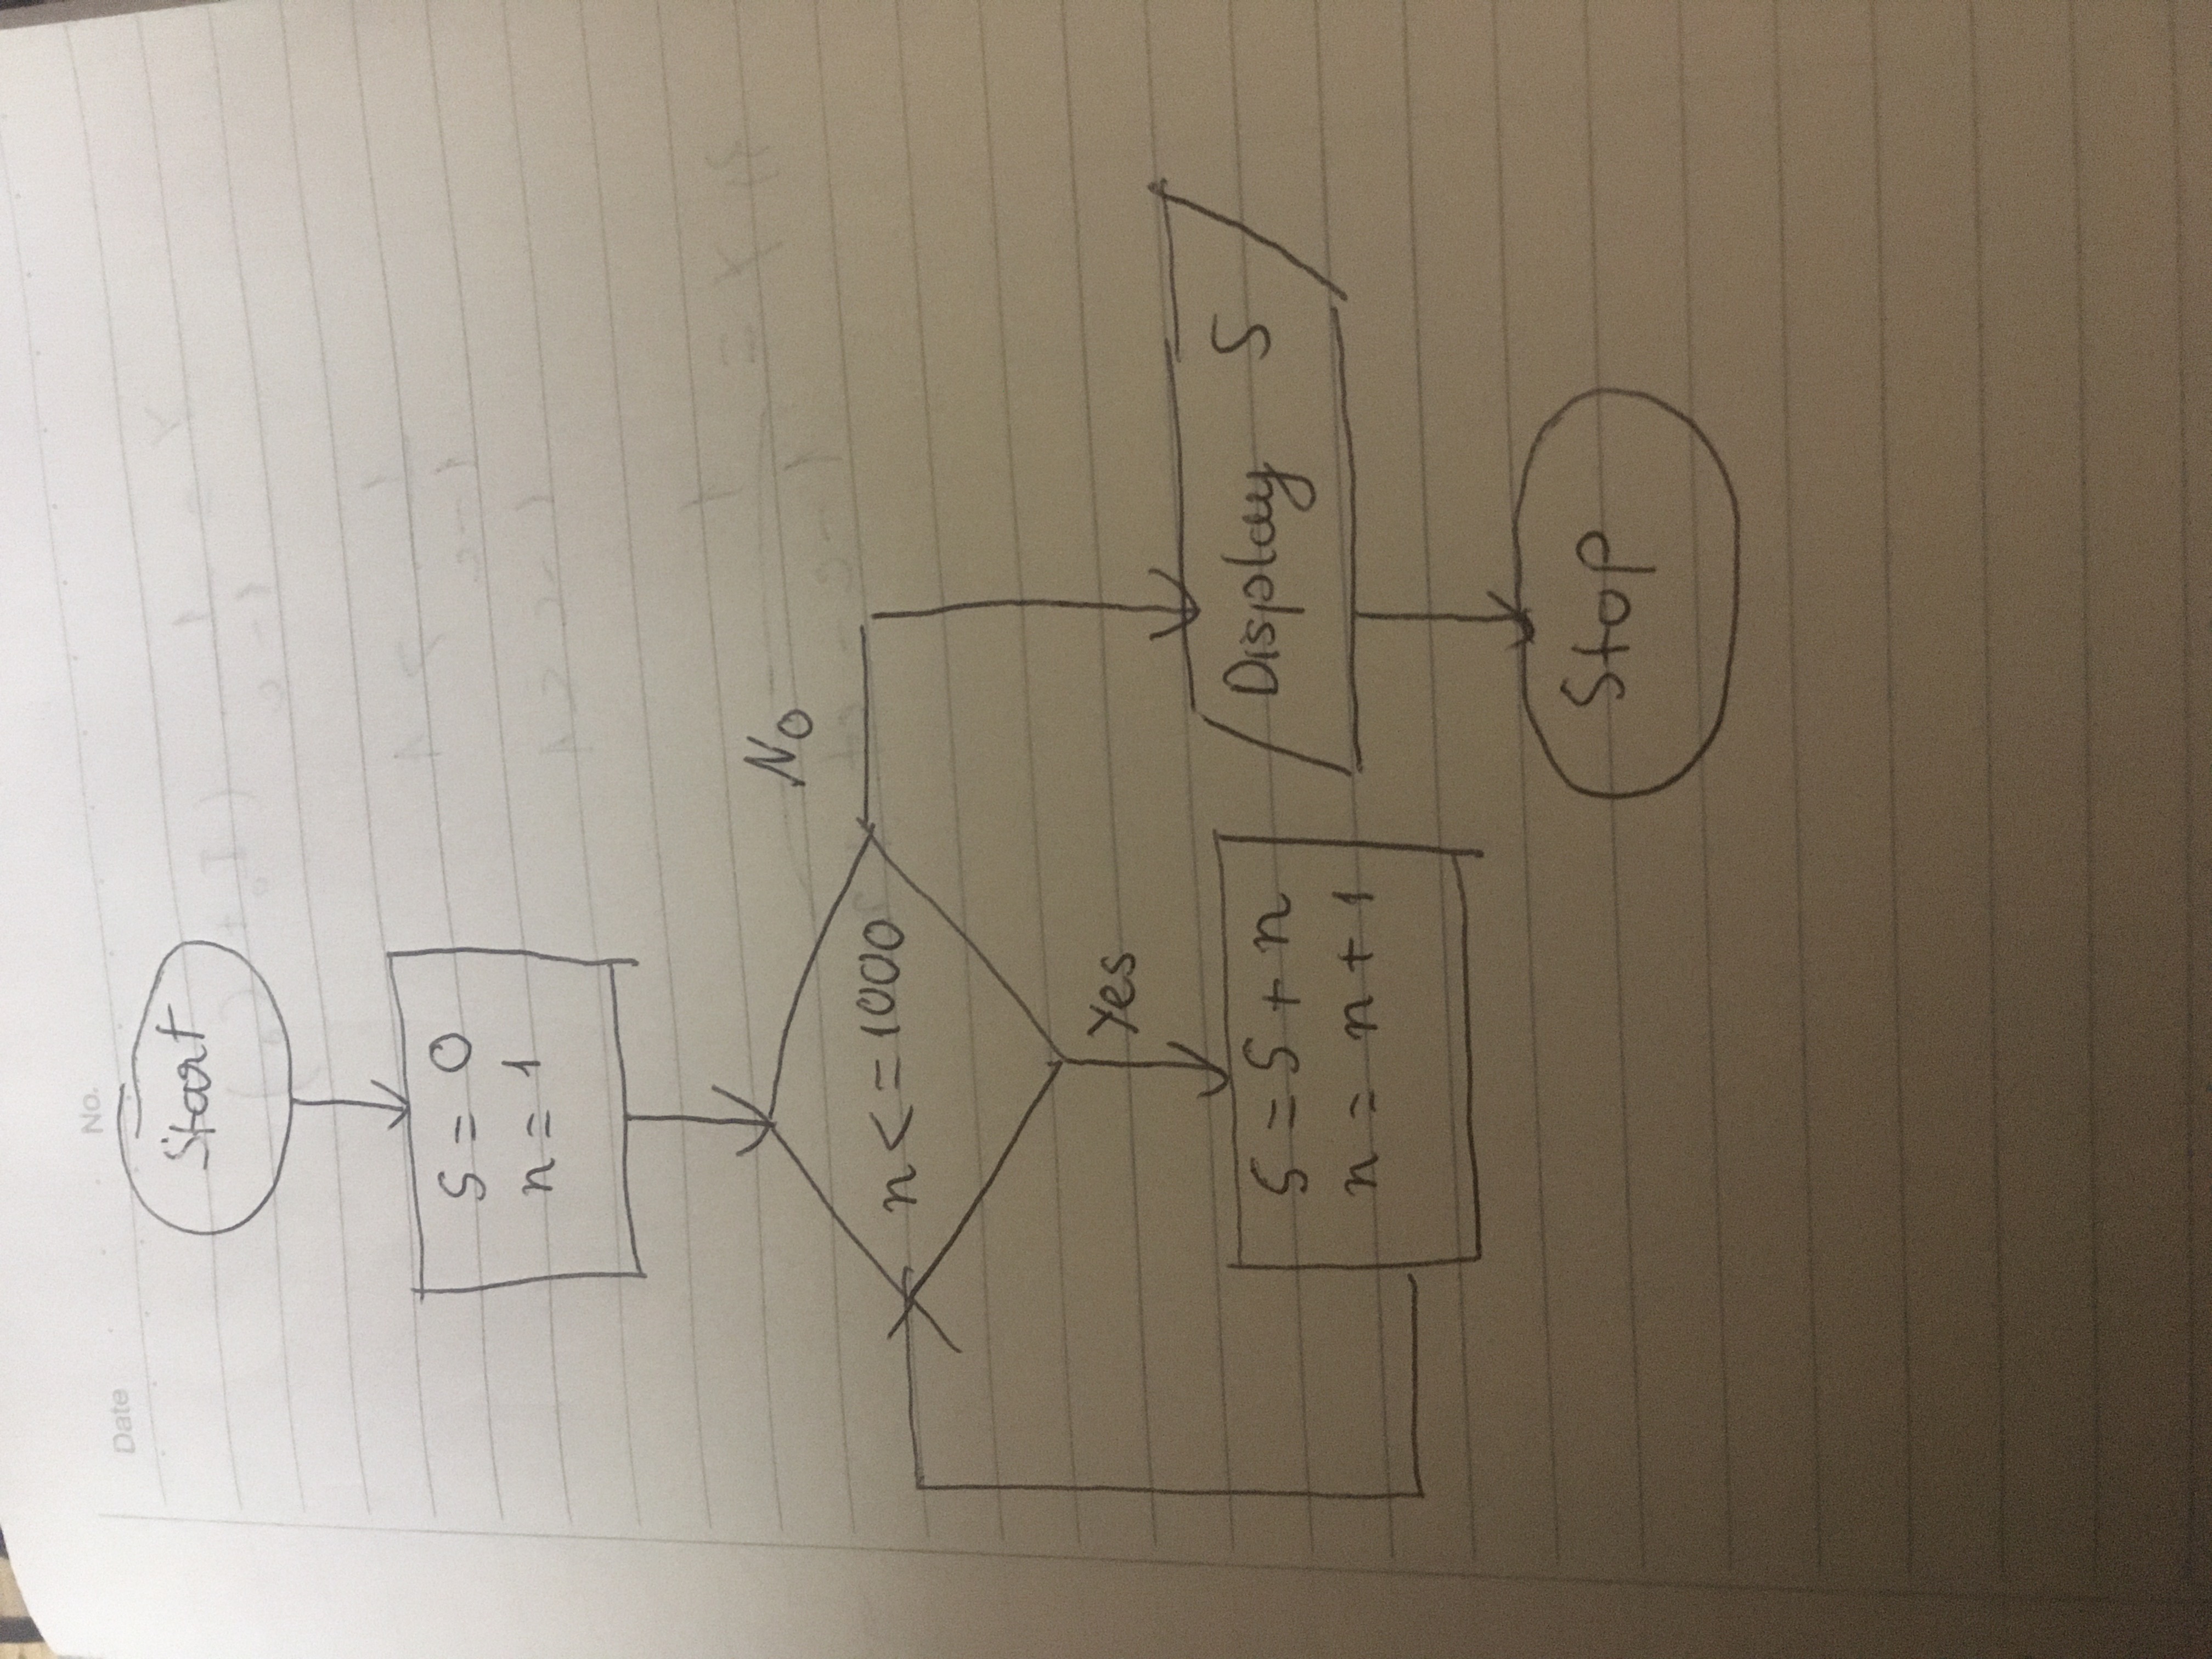 Date
No.
Start
S = 0
n = 1
n <= 1000
No
Yes
S = S + n
n = n + 1
Display S
Stop